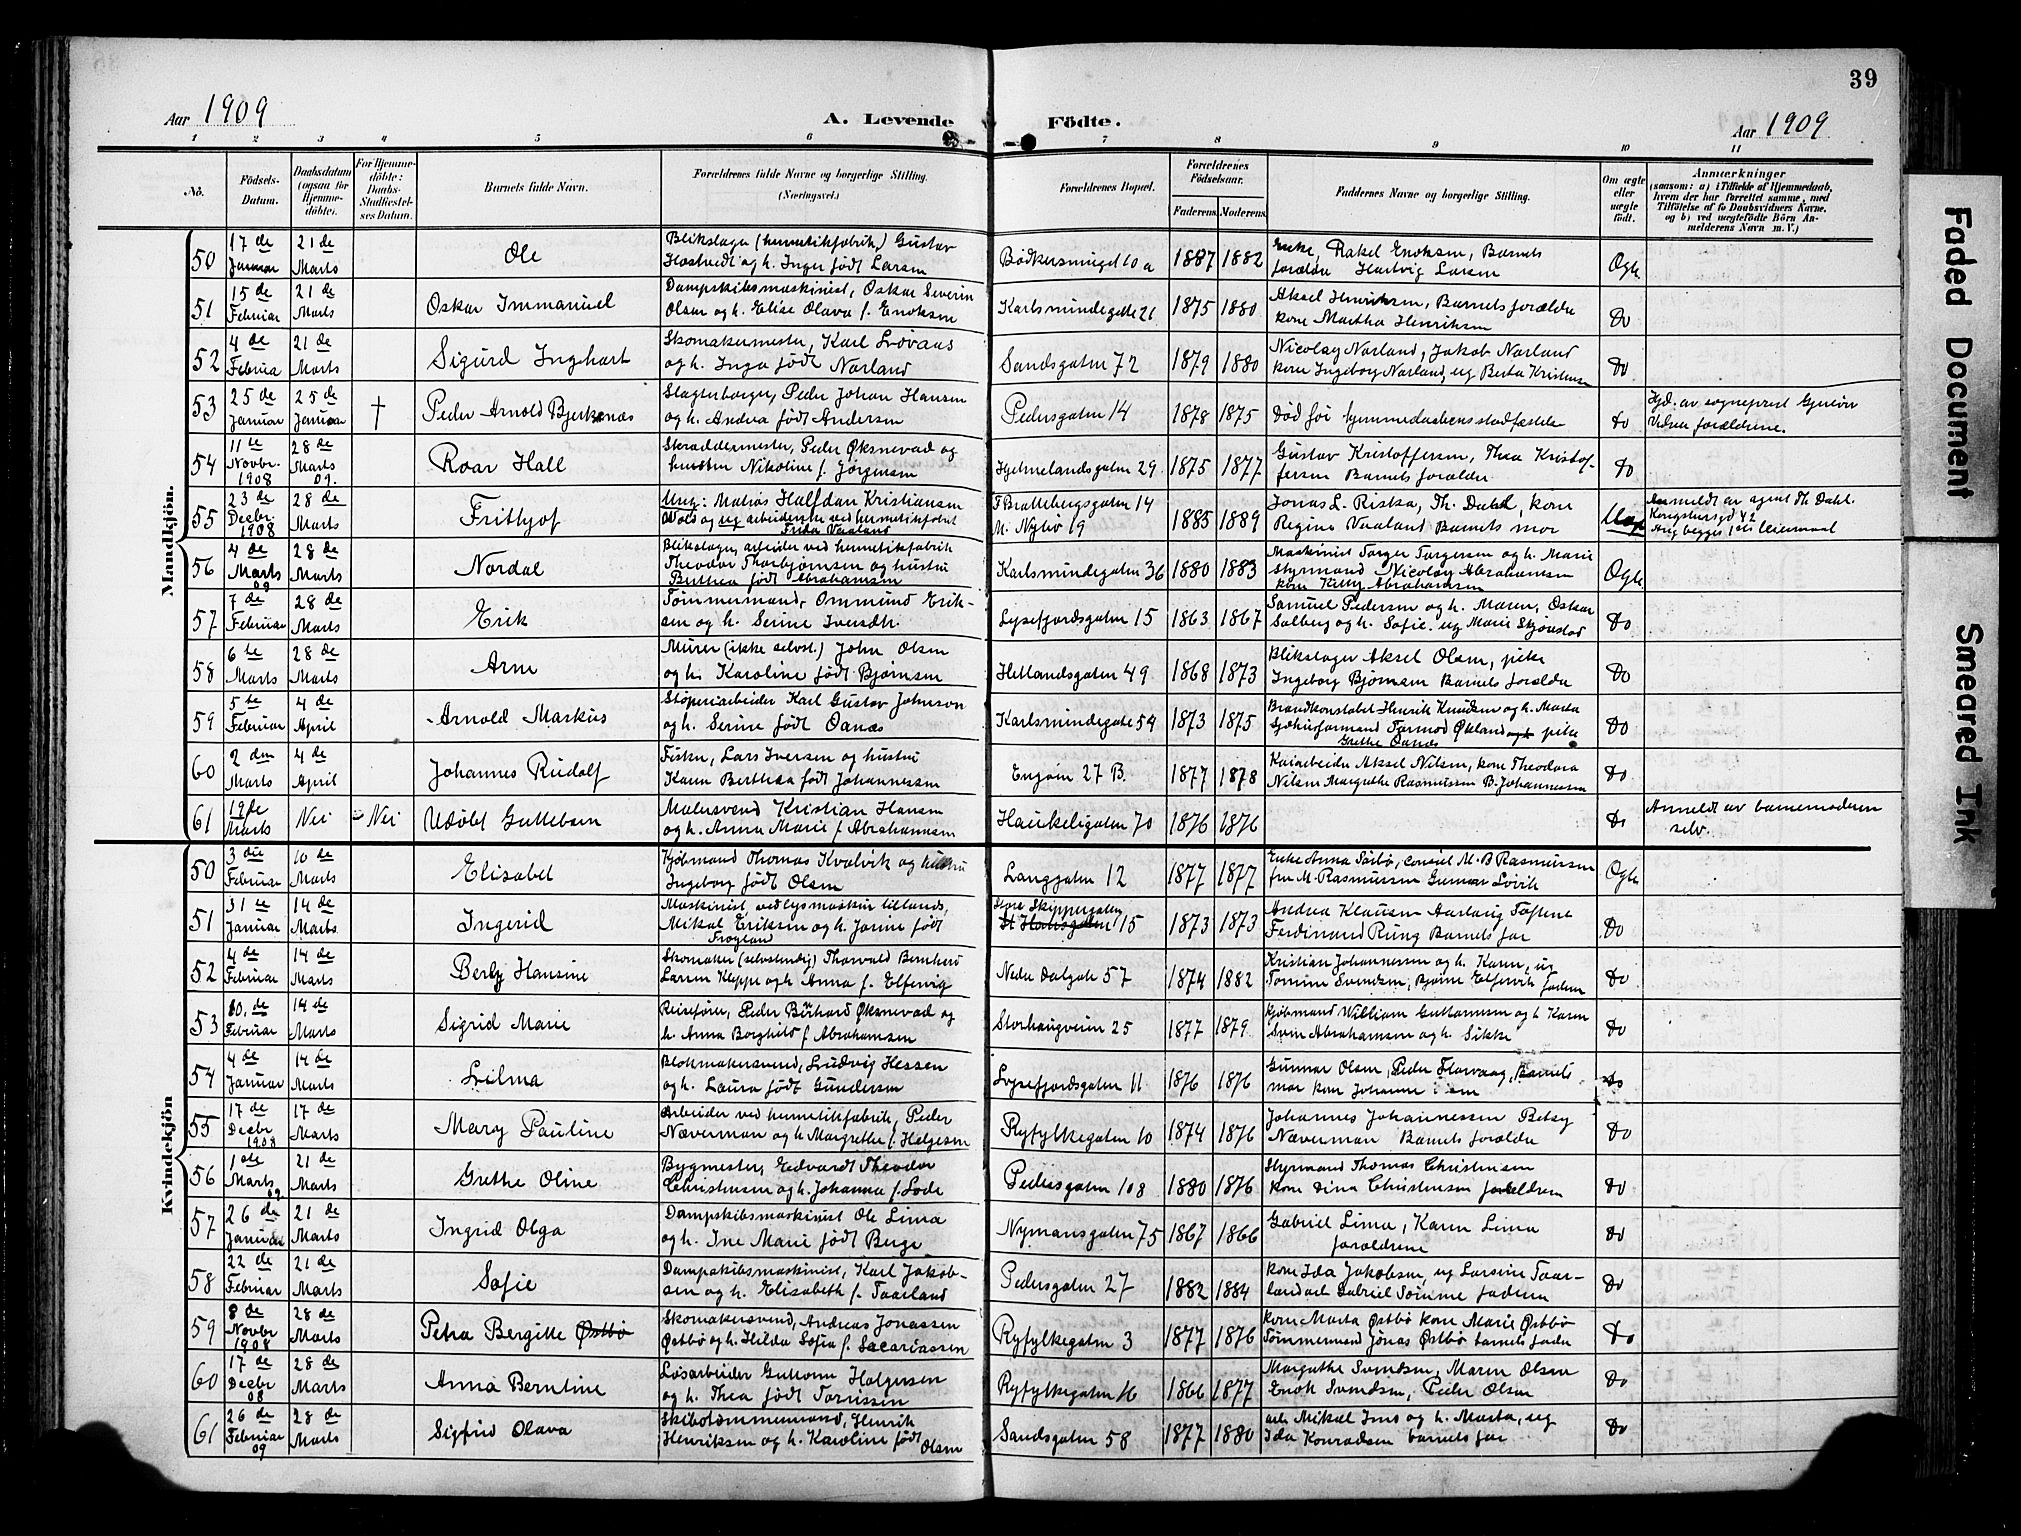 39
Aar 1909
A. Levende Födte.
Aar 1909
1 2 3 4 5 6 7 8 9 10 11
No.
Födsels-Datum.
Daabsdatum (ogsaa for Hjemme-döbte).
For Hjemme-döbte: Daabs-Stadfæstel-ses Datum.
Barnets fulde Navn.
Forældrenes fulde Navne og borgerlige Stilling. (Næringsvei.)
Forældrenes Bopæl.
Forældrenes Födselsaar.
Faderens. Moderens.
Faddernes Navne og borgerlige Stilling.
Om ægte eller uægte födt.
Anmærkninger
(saasom: a) i Tilfælde af Hjemmedaab, hvem der har forrettet samme, med Tilföielse af to Daabsvidners Navne, og b) ved uægtefödte Börn Anmelderens Navn m. V.)
Mandkjön.
50 17 de Januar 21 de Marts Ole Blikslager (hermetikfabrik) Gustav Hastvedt og h. Inger født Larsen Bødkersmuget 10 a 1887 1882 Enke, Rakel Enoksen, Barnets forældre Hartvig Larsen Ægte
51 15 de Februar 21 de Marts Oskar Immanuel Dampskibsmaskinist, Oskar Severin Olsen og h. Elise Olava f. Enoksen Karlsmindegate 21 1875 1880 Aksel Henriksen, Barnets forældre kone Martha Henriksen Do
52 4 de Februa 21 de Marts Sigurd Inghart Skomakermester, Karl Løvaas og h. Inga født Norland Sandsgaten 72 1879 1880 Nicolay Norland, Jakob Norland kone Ingeborg Norland, ug Berta Kristensen Do
53 25 de Januar 25 de Januar † Peder Arnold Bjerkenæs Slagterborger, Peder Johan Hansen og h. Andrea født Andersen Pedersgaten 14 1878 1875 Død før hjemmedaabens stadfæstelse Do Hjd. av sogneprest Vidner forældrene.
54 11 te Novbr. 1908 28 de Marts 09. Roar Hall Skraddermester, Peder Øksnevad og hustru Nikoline f. Jørgensen Hjelmelandsgaten 29 1875 1877 Gustav Kristoffersen, Thea Kristoffersen Barnets forældre Do
55 23 de Decbr. 1908 28 de Marts Frithjof Ung: Matias Halfdan Kristiansen og ug arbeiderske ved hermetikfabrik Frida Vaaland F. Brattebergsgaten 14 M. Nybø 19 1885 1889 Jonas L. Riska, Th. Dahl, kone Regine Vaaland Barnets mor Anmeldt av agent Th. Dahl. Kongsteinsgd 42 Ang. begges 1ste leiermaal
56 4 de Marts 09 28 de Marts Nordal Blikslager, arbeider ved hermetikfabrik Theodor Thorbjørnsen og hustru Berthea født Abrahamsen Karlsmindegaten 36 1880 1883 Maskinist Torger Torgersen og h. Marie Styrmand Nicolay Abrahamsen kone Kitty Abrahamsen Ægte
57 7 de Februar 28 de Marts Erik Tømmermand, Ommund Eriksen og h. Serine Iversdtr. Lysefjordsgaten 15 1863 1867 Samuel Pedersen og h. Maren, Oskar Solberg og h. Sofie, ug Marie Skjønstad Do
58 6 te Marts 28 de Marts Arne Murer (ikke selvst.) John Olsen og h. Karoline født Bjørnsen Hetlandsgaten 49 1868 1873 Blikslager Aksel Olsen, pike Ingeborg Bjørnsen Barnets forældre Do
59 5 te Februar 4 de April Arnold Markus Støperiarbeider Karl Gustav Johnson og h. Serine født Oanæs Karlsmindegate 54 1873 1875 Brandkonstabel Henrik Knudsen og h. Marta Sjøhusformand Tormod Økland pike Grethe Oanæs Do
60 2 den Marts 4 de April Johannes Rudolf Fisker, Lars Iversen og hustru Karen Berthea født Johannessen Engøen 27 B. 1877 1878 Kaiarbeider Aksel Nilsen, kone Theodora Nilsen Margrethe Rasmussen B. Johannessen Do
61 19 de Marts Nei Nei Udøbt Guttebarn Malersvend Kristian Hansen og h. Anna Marie f Abrahamsen Haukeligaten 70 1876 1876 Do Anmeldt av barnemoderen selv.
Kvindekjön
50 3 die Februar 10 de Marts Elisabet Kjøbmand Thomas Kvalvik og hustru Ingeborg født Olsen Langgaten 12 1877 1877 Enke Anna Sørbø, consul M. B Rasmussen fru M. Rasmussen Gunnar Løvik Ægte
51 31 te Januar 14 de Marts Ingerid Maskinist ved lysmaskin tillands, Mikal Eriksen og h. Janne født Frøyland Store Skippergaten St Hansgaten 15 1873 1873 Andrea Klausen Aarlaug Toftene Ferdinand Ring Barnets far Do
52 4 de Februar 14 de Marts Berly Hansine Skomaker (selvstendig) Thorvald Bernhard Laren Kleppe og h. Anna f. Elfevig Nedre Dalgate 57 1874 1882 Kristian Johannessen og h. Karen, ug Tomine Svendsen, Bjørne Elfervik faderen Do
53 10. de Februar 14 de Marts Sigrid Marie Reisefører, Peder Bürhard Øksnevad og h. Anna Borghild f Abrahamsen Storhaugveien 25 1877 1879 Kjøbmand William Guttormsen og h Karen Sven Abrahamsen og h. Sikke Do
54 4 de Januar 14 de Marts Lilma Blokmakersvend, Ludvig Hessen og h. Laura født Gundersen Lysefjordsgaten 11 1876 1876 Gunnar Olsen, Peder Florvaag, Barnets mor kone Johanne Do
55 17 de Decbr 1908 17 de Marts Mary Pauline Arbeider ved hermetikfabrik, Peder Næverman og h. Margrethe f. Helgesen Ryfylkegaten 10 1874 1876 Johannes Johannessen Betsy Næverman Barnets forældre Do
56 1 ste Marts 09 21 de Marts Grethe Oline Bygmester, Edvardt Theodor Christensen og h. Johanna f. Lode Pedersgaten 108 1880 1876 Styrmand Thomas Christensen kone Dina Christensen forældrene Do
57 26 de Januar 21 de Marts Ingrid Olga Dampskibsmaskinist Ole Lima og h. Ine Marie født Berge Nymansgaten 75 1867 1866 Gabriel Lima, Karen Lima forældrene Do
58 22 de Februar 21 de Marts Sofie Dampskibsmaskinist, Karl Jakobsen og h. Elizabeth f. Taarland Pedersgaten 27 1882 1884 kone Ida Jakobsen, ug Larsine Taarland Gabriel Tomme faderen Do
59 8 de Novbr 1908 28 de Marts Petra Bergitte Østbø Skomakersvend, Andreas Jonassen Østbø og h. Hilda Sofia f. Sacariassen Ryfylkegaten 3 1877 1876 kone Marta Østbø kone Marie Østbø Tømmermand Jonas Østbø barnets fader Do
60 17 de Decbr 08 28 de Marts Anna Berntine Løsarbeider Guttorm Holgersen og h. Thea født Tørrissen Ryfylkegaten 16 1866 1877 Margrethe Svendsen, Maren Olsen Enok Svendsen, Peder Olsen Do
61 26 de Februar 09 28 de Marts Sigfrid Olava Skibstømmermand, Henrik Henriksen og h. Karoline født Olsen Sandsgaten 58 1877 1880 arb. Mikal Ims og h. Marta, ug Ida Konradsen barnets far Do
Faded Document
Smeared Ink